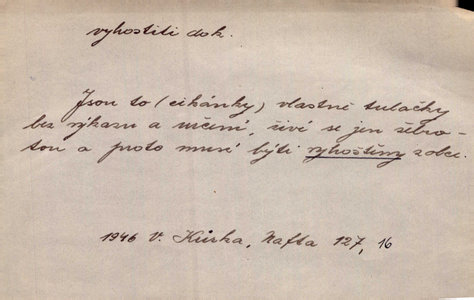 vyhostiti dok.
Jsou to (cikánky) vlastně tulačky
bez výkazu a určení, živí se jen žebro-
tou a proto musí býti vyhoštěny z obce.
1946 V. Kůrka, Nafta 127, 16